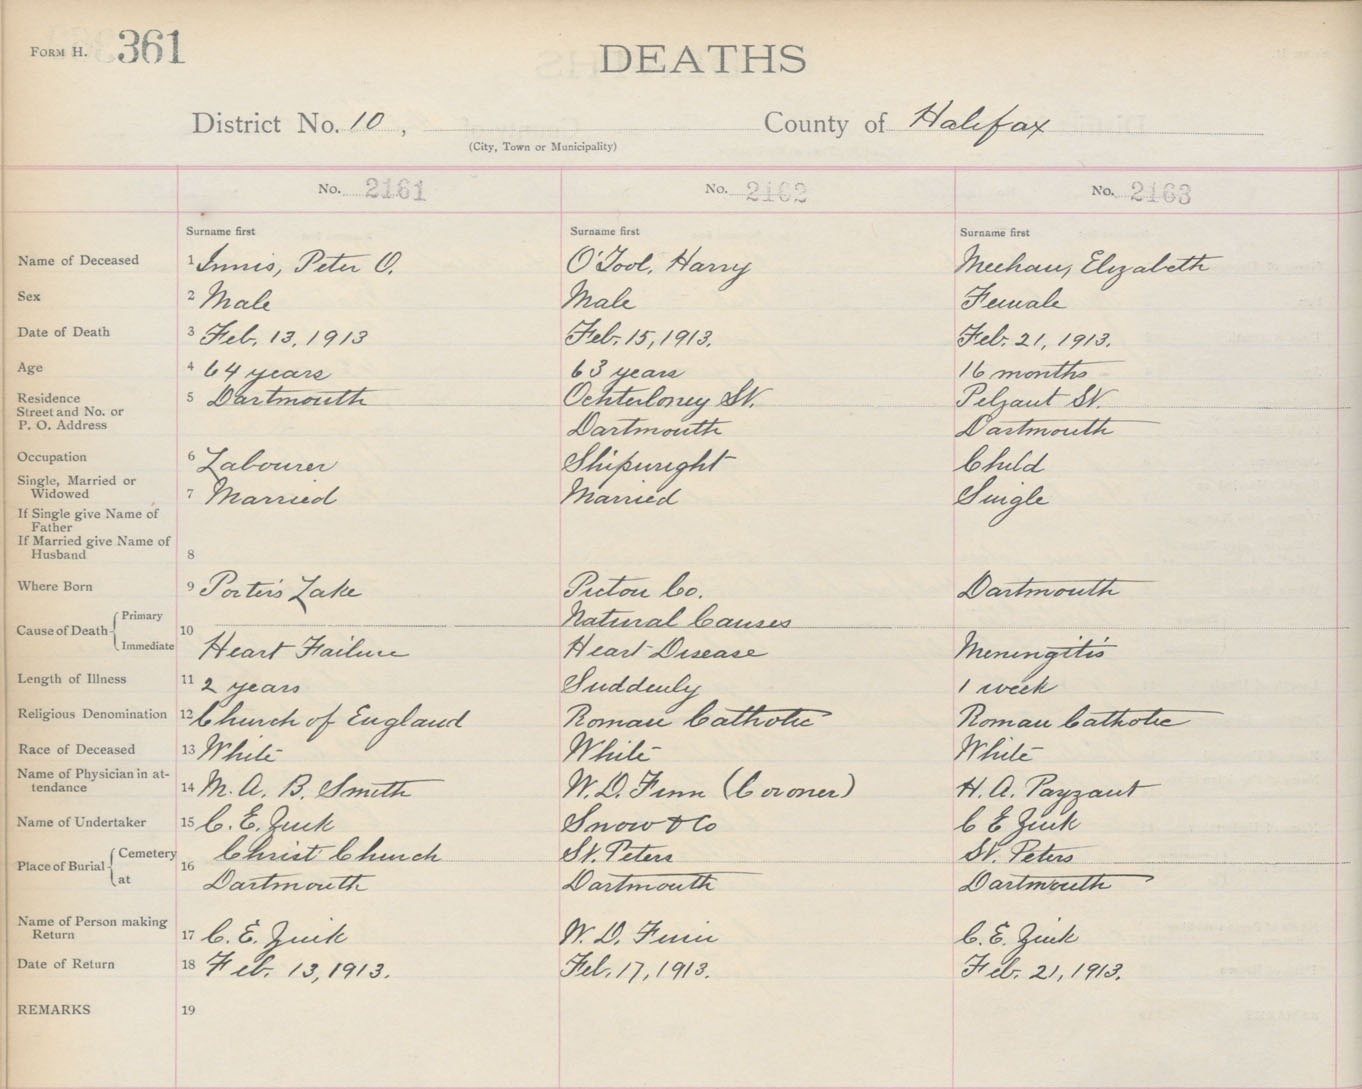 FORM H. 361
DEATHS
District No. 10 , County of Halifax
(City, Town or Municipality)
No. 2161 No. 2162 No. 2163
Surname first Surname first Surname first
Name of Deceased 1 Innis, Peter O. O'Tool, Harry Meehan, Elizabeth
Sex 2 Male Male Female
Date of Death 3 Feb. 13, 1913 Feb. 15, 1913. Feb. 21, 1913.
Age 4 64 years 63 years 16 months
Residence 5 Dartmouth Ochterloney St. St.
Street and No. or
P. O. Address Dartmouth Dartmouth
Occupation 6 Labourer Shipwright Child
Single, Married or
Widowed 7 Married Married Single
If Single give Name of
Father
If Married give Name of
Husband 8
Where Born 9 Porter's Lake Pictou Co. Dartmouth
Cause of Death 10 Primary Natural Causes
Immediate Heart Failure Heart Disease Meningitis
Length of Illness 11 2 years Suddenly 1 week
Religious Denomination 12 Church of England Roman Catholic Roman Catholic
Race of Deceased 13 White White White
Name of Physician in at-
tendance 14 M. A. B. Smith W. D. Finn (Coroner) H. A. Payzant
Name of Undertaker 15 C. E. Zink Snow & Co C E Zink
Place of Burial 16 Cemetery Christ Church St. Peters St. Peters
at Dartmouth Dartmouth Dartmouth
Name of Person making
Return 17 C. E. Zink W. D. Finn C. E. Zink
Date of Return 18 Feb. 13, 1913. Feb. 17, 1913. Feb. 21, 1913.
REMARKS 19